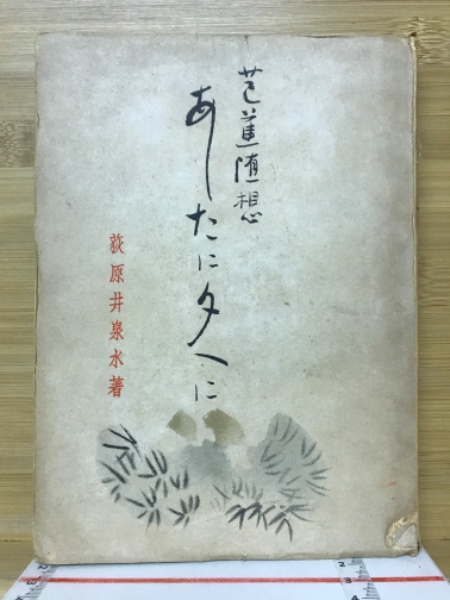 芭蕉随想
あしたに夕べに
荻原井泉水著